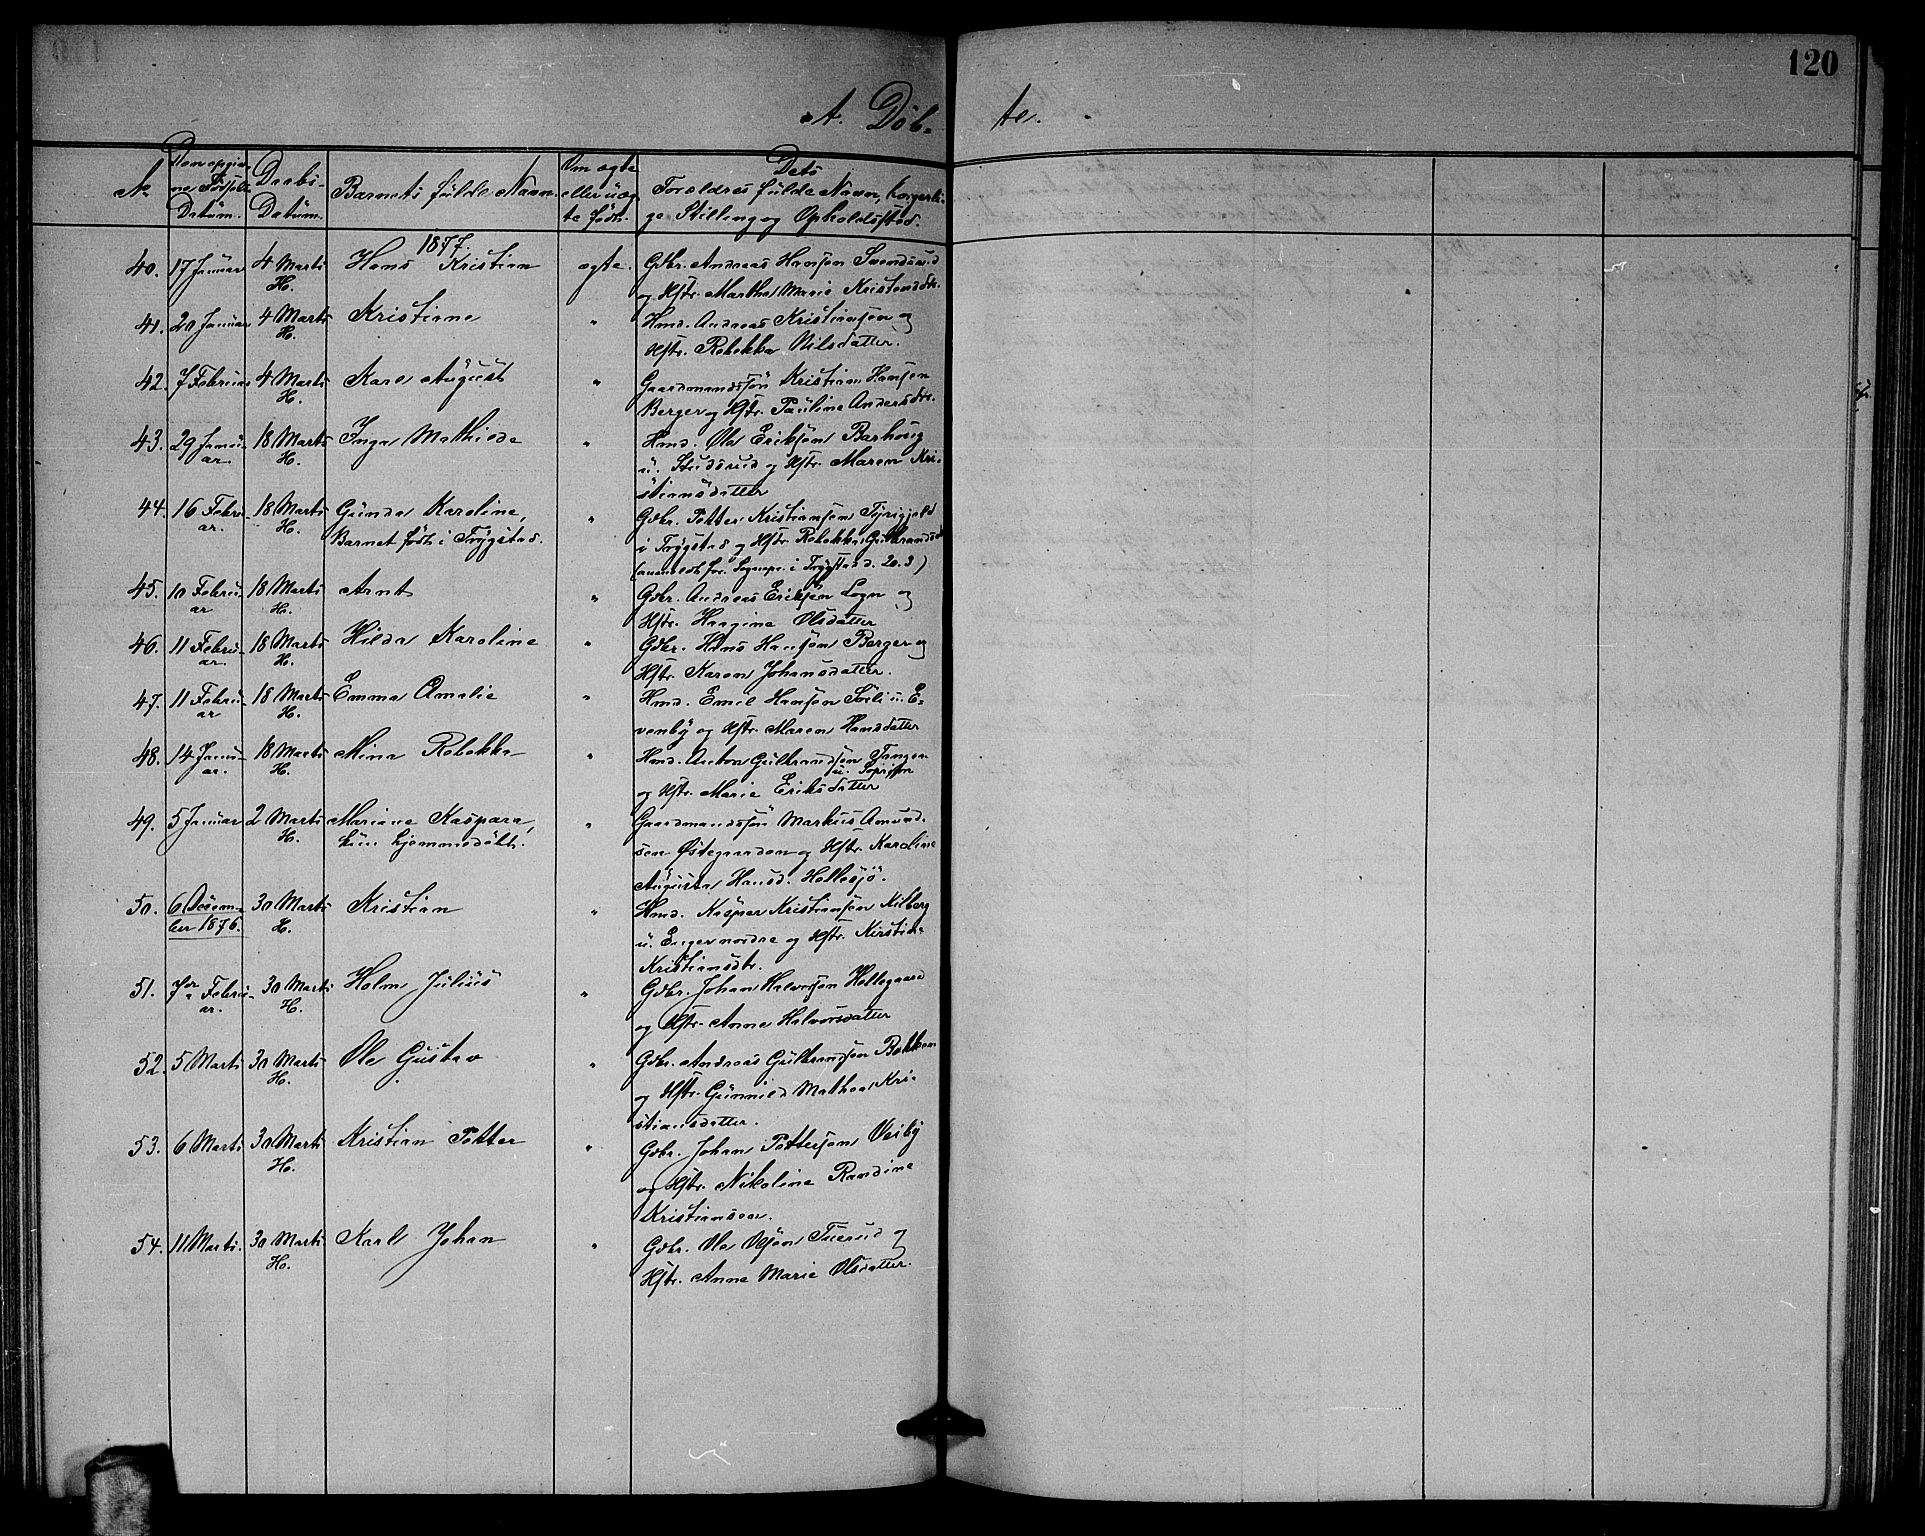 120
A. Døb- te.
№
Den opgivne Fødsels Datum.
Daabs- Datum.
Barnets fulde Navn
Om ægte eller uægte født.
Dets Forældres fulde Navn, borgerlige Stilling og Opholdssted.
1877.
40. 17 Januar 4 Marts H. Hans Kristian ægte. Gdbr. Andreas Hansen Svendsrud
og Hstr. Martha Marie Kristensdtr.
41. 20 Januar 4 Marts H. Kristiane " Hmd. Andreas Kristiansen og
Hstr. Rebekka Nilsdatter.
42. 7 Februar 4 Marts H. Karl August " Gaardmandssøn Kristian Hansen
Berger og Hstr. Pauline Andersdtr.
43. 29 Januar 18 Marts H. Inga Mathilde " Hmd. Ole Eriksen Barhoug
u. Studsrud og Hstr. Maren Kri-
stiansdatter
44. 16 Februar. 18 Marts H. Gunda Karoline, " Gdbr. Petter Kristiansen Tyrigjeld
Barnet født i Trygstad. i Trygstad og Hstr. Rebekka Gulbrandsd.
(anmeldt for Sognepr. i Trygstad d. 20.3)
45. 10 Februar 18 Marts H. Arnt " Gdbr. Andreas Eriksen Logn og
Hstr. Haagine Olsdatter
46. 11 Februar. 18 Marts H. Hilda Karoline " Gdbr. Hans Hansen Berger og
Hstr. Karen Johansdatter.
47. 11 Februar 18 Marts H. Emma Amalie " Hmd. Emil Hansen Søli u. E-
venby og Hstr. Maren Hansdatter
48. 14 Januar. 18 Marts H. Mina Rebekka " Hmd. Anton Gulbrandsen Tangen
og Hstr. Marie Eriksdatter
49. 5 Januar 2 Marts H. Mariane Kaspara, " Gaardmandssøn Markus Amund-
kun hjemmedøbt. sen Østegaarden og Hstr. Karoline
Augusta Hansd. Hellesjø.
50. 6 December 1876. 30 Marts H. Kristian " Hmd. Kaspar Kristiansen Kilberg
u. Enger nordre og Hstr. Kirstine
Kristiansdtr.
51. 7de Februar. 30 Marts H. Holm Julius " Gdbr. Johan Halvorsen Hellegaard
og Hstr. Anne Halvorsdatter
52. 5 Marts 30 Marts H. Ole Gustav " Gdbr. Andreas Gulbrandsen Bakken
og Hstr. Gunnild Mathea Kri-
stiansdatter.
53. 6 Marts 30 Marts H. Kristian Petter " Gdbr. Johan Pettersen Visby
og Hstr. Nikoline Randine
Kristiansen.
54. 11 Marts. 30 Marts H. Karl Johan " Gdbr. Ole Olsen Tuerud og
Hstr. Anne Marie Olsdatter.